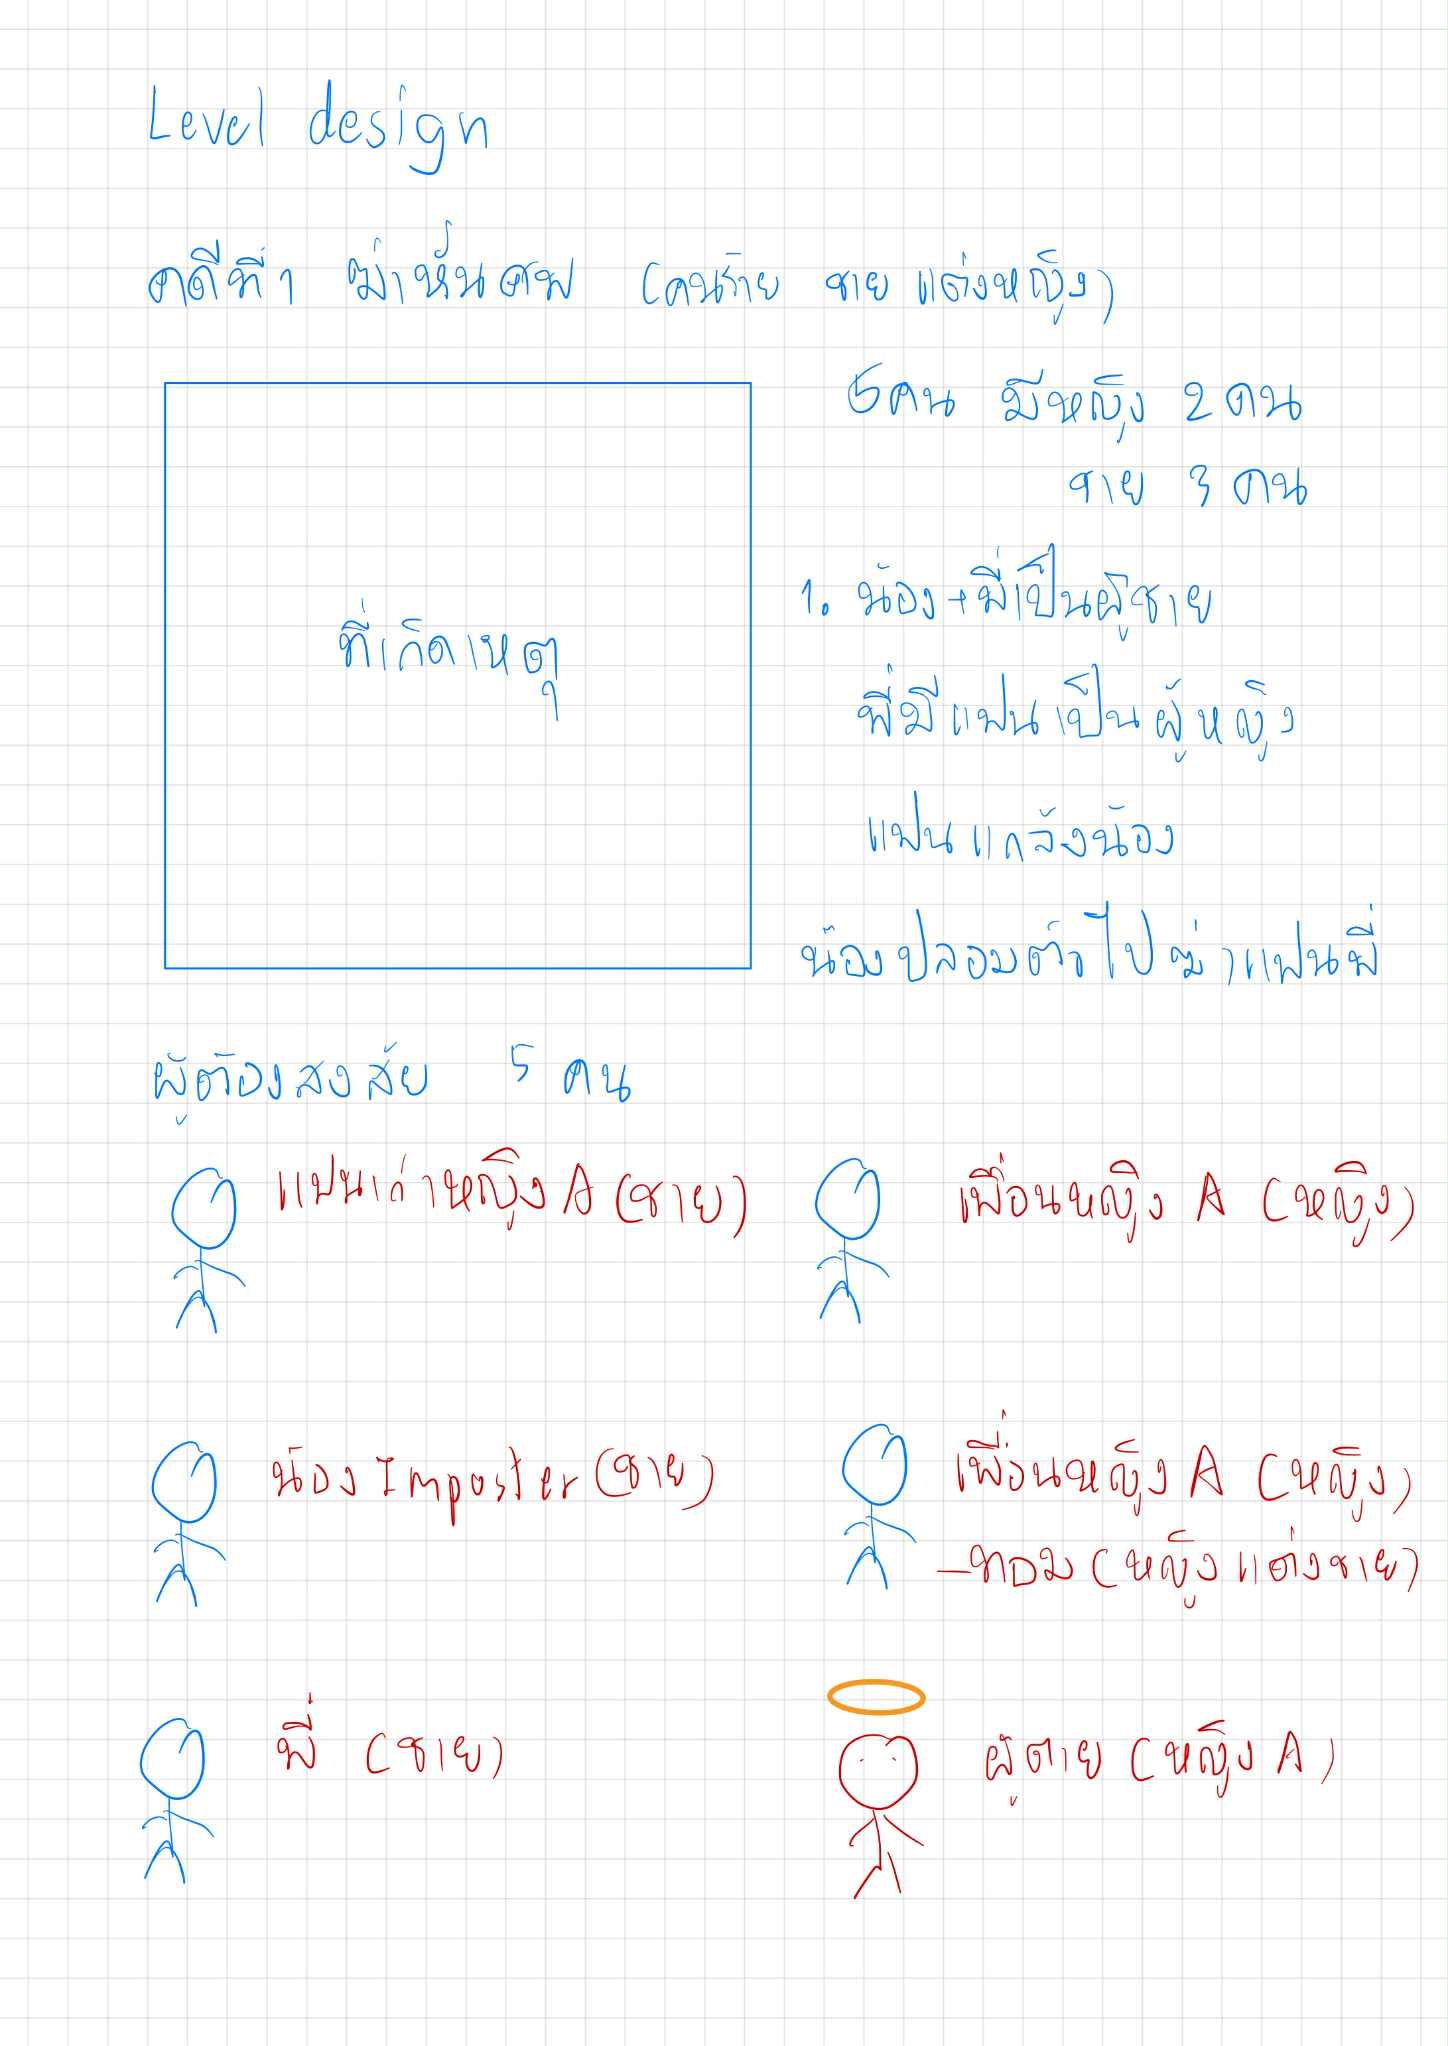 Level design
คดีที่ 1 ฆ่าหั่นศพ (คนร้าย ชาย แต่งหญิง)
5 คน มีหญิง 2 คน
ชาย 3 คน
ที่เกิดเหตุ
1. น้อง + พี่เป็นผู้ชาย
พี่มีแฟนเป็นผู้หญิง
แฟนแกล้งน้อง
น้องปลอมตัวไปฆ่าแฟนพี่
ผู้ต้องสงสัย 5 คน
แฟนเก่าหญิง A (ชาย)
เพื่อนหญิง A (หญิง)
น้อง Imposter (ชาย)
เพื่อนหญิง A (หญิง)
- ทอม (หญิงแต่งชาย)
พี่ (ชาย)
ผู้ตาย (หญิง A)